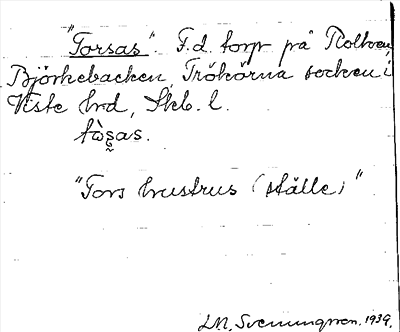 "Torsas". F.d. torp på Rolhven,
Björkebacken, Trökörna socken i
Viste hrd, Skb. l.
tòs̰as.
"Tors hustrus (ställe)"
L.M. Svenungsson. 1939.